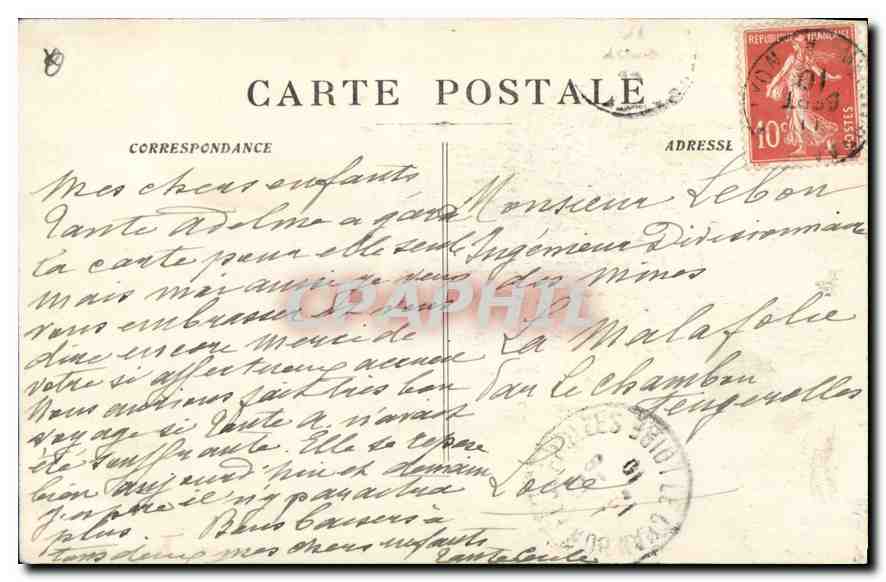 CARTE POSTALE
CORRESPONDANCE
ADRESSE
REPUBLIQUE FRANÇAISE
10c
POSTES
Mes chers enfants
Tante Adelme a
la carte pour elle seule
mais moi aussi je veux
vous embrasser et vous
dire encore merci de
votre si affectueux accueil
Nous aurions fait très bon
voyage si Tante A. n'avait
été souffrante. Elle se repose
bien aujourd'hui et demain
j'espère il n'y paraîtra
plus. Bons baisers à
tous deux mes chers enfants
Tante Cécile
Monsieur Lebon
Ingénieur Divisionnaire
des mines
La Malafolie
par Le Chambon
Feugerolles
Loire
CPAPHIL